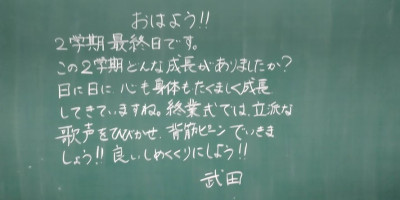 おはよう!!
2学期最終日です。
この2学期どんな成長がありましたか?
日に日に心も身体もたくましく成長
してきていますね。終業式では、立派な
歌声をひびかせ、背筋ピーンでいきま
しょう!! 良いしめくくりにしよう!!
武田